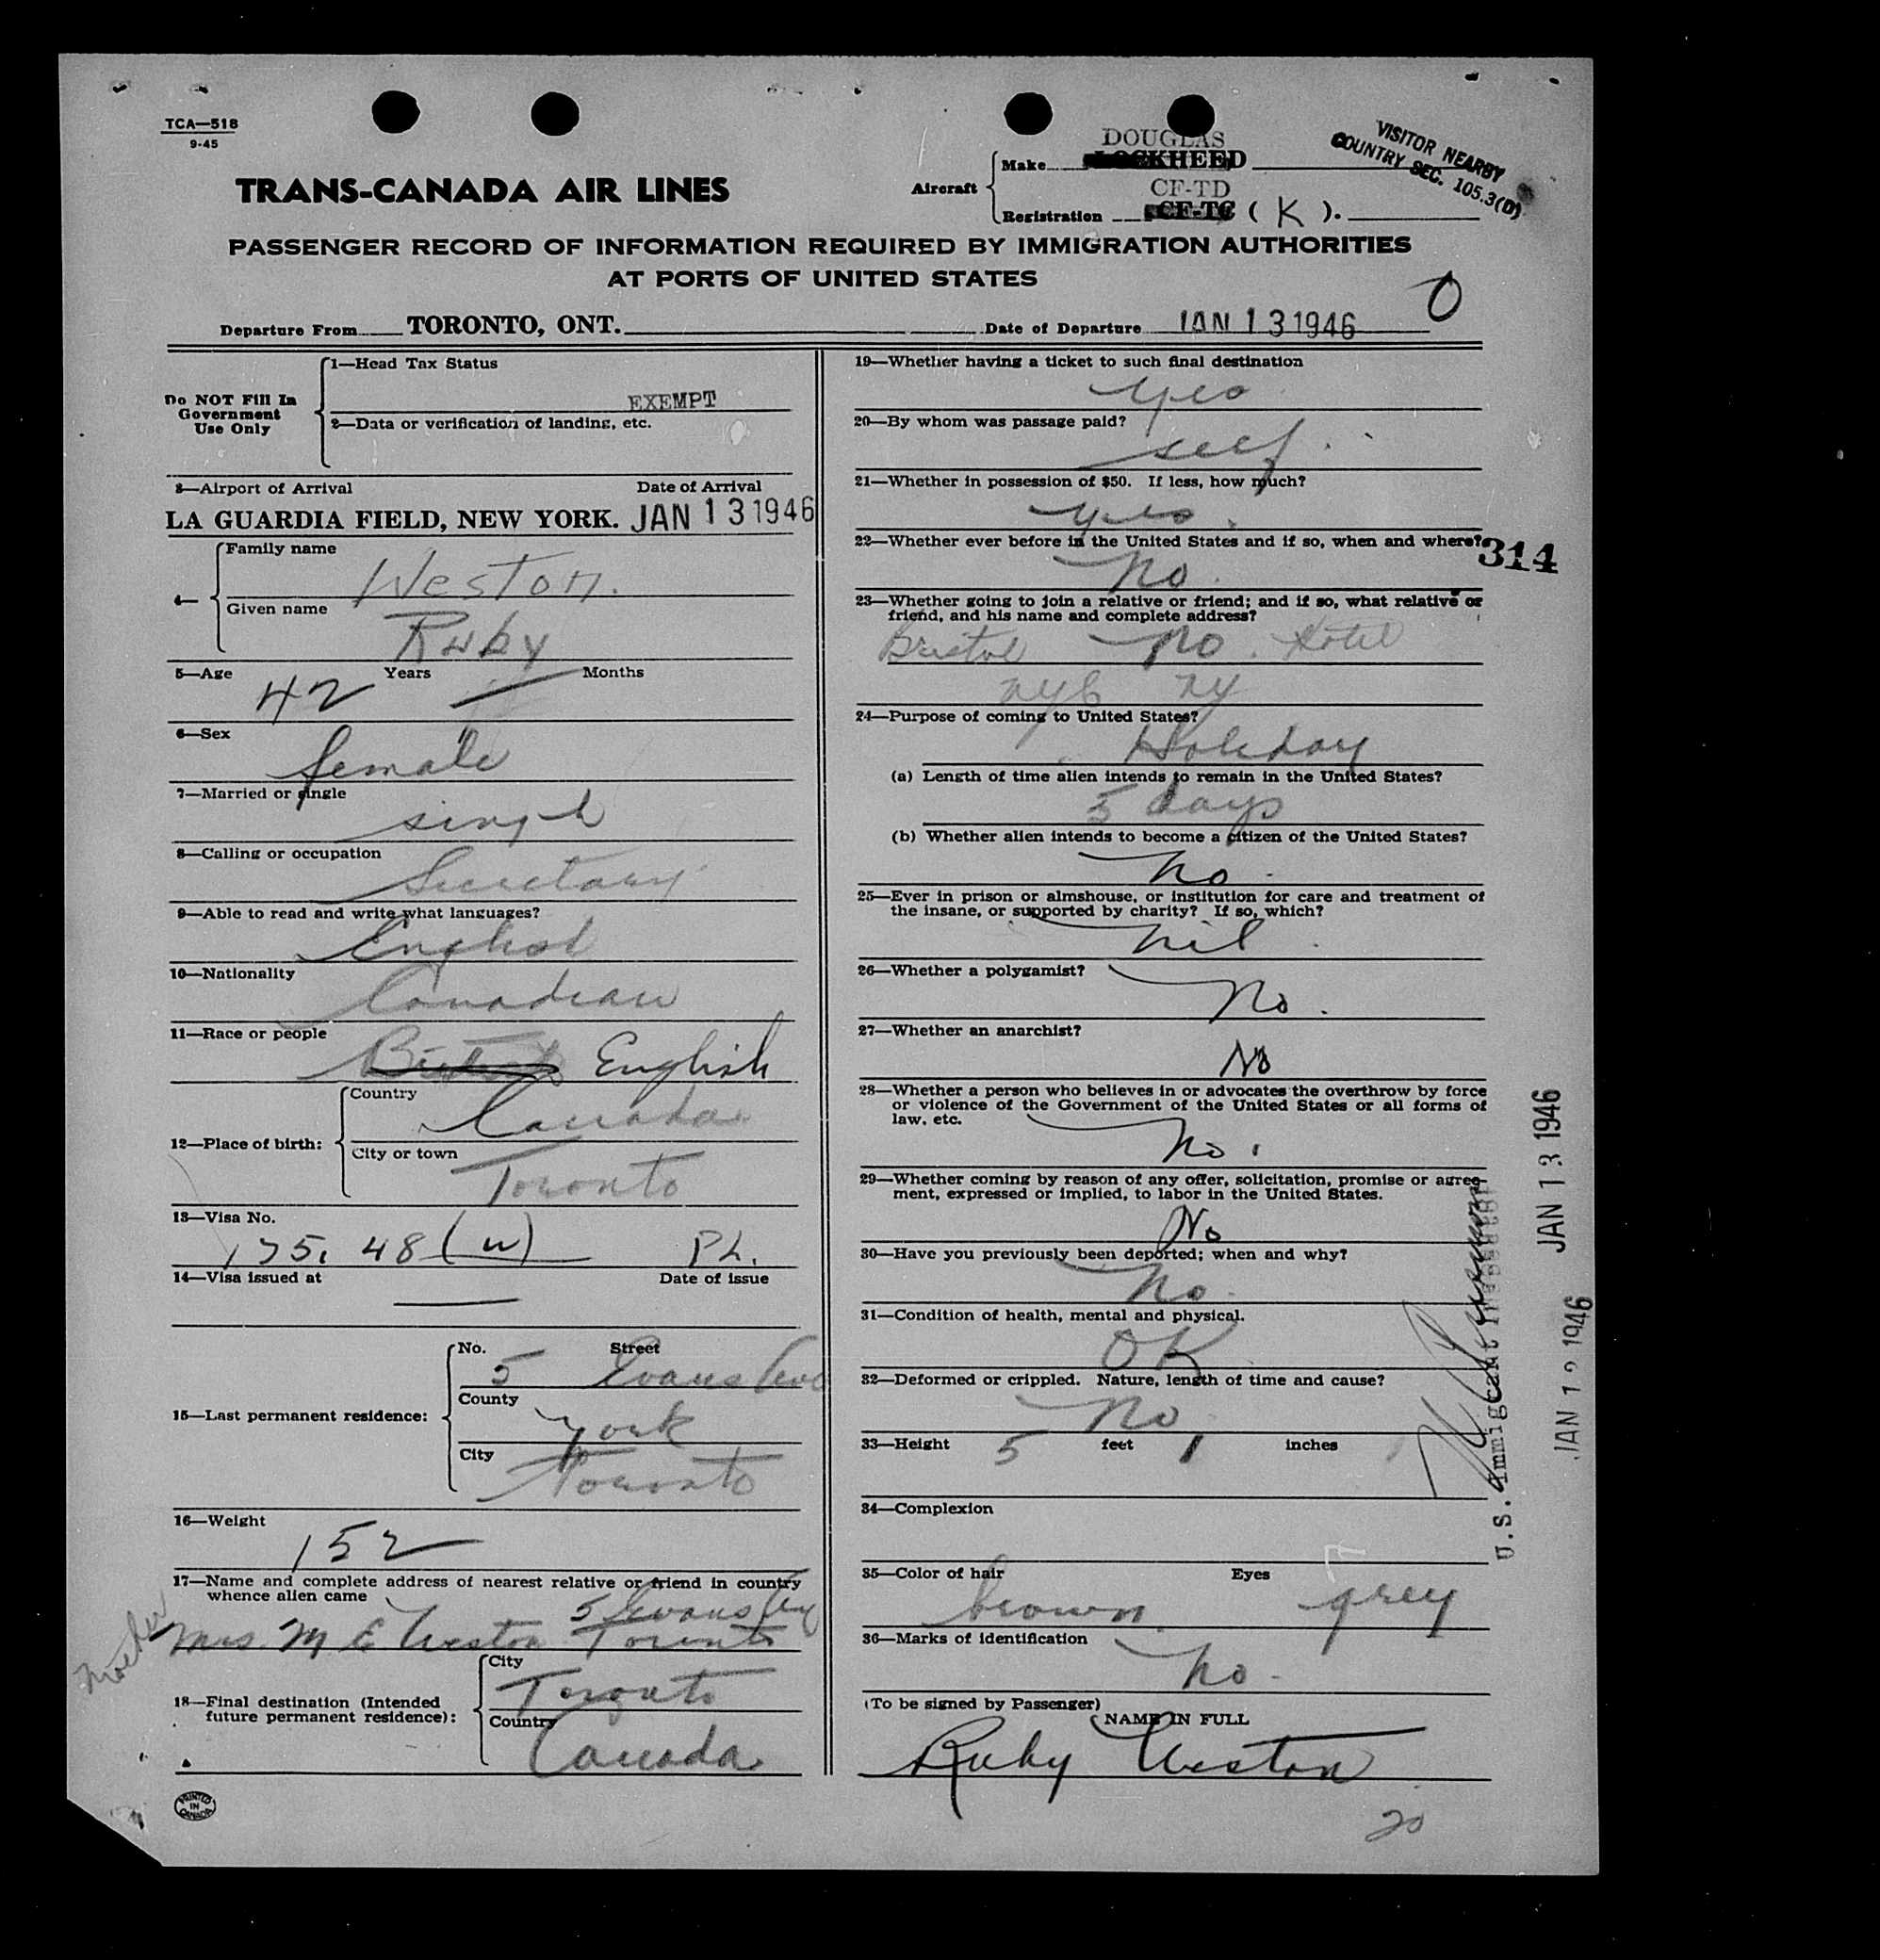 TCA—518
9-45
TRANS-CANADA AIR LINES
Aircraft
Make DOUGLAS
LOCKHEED
Registration CF-TD
CF-TC ( K ).
VISITOR NEARBY
COUNTRY SEC. 105.3(D)
PASSENGER RECORD OF INFORMATION REQUIRED BY IMMIGRATION AUTHORITIES
AT PORTS OF UNITED STATES
0
Departure From TORONTO, ONT. Date of Departure JAN 13 1946
Do NOT Fill In
Government
Use Only
1—Head Tax Status
EXEMPT
2—Data or verification of landing, etc.
3—Airport of Arrival Date of Arrival
LA GUARDIA FIELD, NEW YORK. JAN 13 1946
4—
Family name
Weston.
Given name
Ruby
5—Age 42 Years — Months
6—Sex
female
7—Married or single
single
8—Calling or occupation
Secretary
9—Able to read and write what languages?
English
10—Nationality
Canadian
11—Race or people
British English
12—Place of birth:
Country
Canada
City or town
Toronto
13—Visa No.
175. 48 (w) PL.
14—Visa issued at Date of issue
—
15—Last permanent residence:
No. Street
5 Evans Ave
County
York
City
Toronto
16—Weight
152
17—Name and complete address of nearest relative or friend in country
whence alien came
5 Evans Ave
Mother Mrs. M E Weston Toronto
18—Final destination (Intended
future permanent residence):
City
Toronto
Country
Canada
PRINTED
IN
CANADA
19—Whether having a ticket to such final destination
yes
20—By whom was passage paid?
self.
21—Whether in possession of $50. If less, how much?
yes.
22—Whether ever before in the United States and if so, when and where?
314
No.
23—Whether going to join a relative or friend; and if so, what relative or
friend, and his name and complete address?
Bristol No. Hotel
NYC NY
24—Purpose of coming to United States?
Holiday
(a) Length of time alien intends to remain in the United States?
5 days
(b) Whether alien intends to become a citizen of the United States?
No.
25—Ever in prison or almshouse, or institution for care and treatment of
the insane, or supported by charity? If so, which?
nil
26—Whether a polygamist?
No.
27—Whether an anarchist?
No
28—Whether a person who believes in or advocates the overthrow by force
or violence of the Government of the United States or all forms of
law, etc.
No.
29—Whether coming by reason of any offer, solicitation, promise or agree-
ment, expressed or implied, to labor in the United States.
No
30—Have you previously been deported; when and why?
No.
31—Condition of health, mental and physical.
OK
32—Deformed or crippled. Nature, length of time and cause?
No
33—Height 5 feet 1 inches
34—Complexion
35—Color of hair Eyes
brown grey
36—Marks of identification
No.
(To be signed by Passenger)
NAME IN FULL
Ruby Weston
20
U.S. Immigrant Inspector
JAN 13 1946
JAN 12 1946